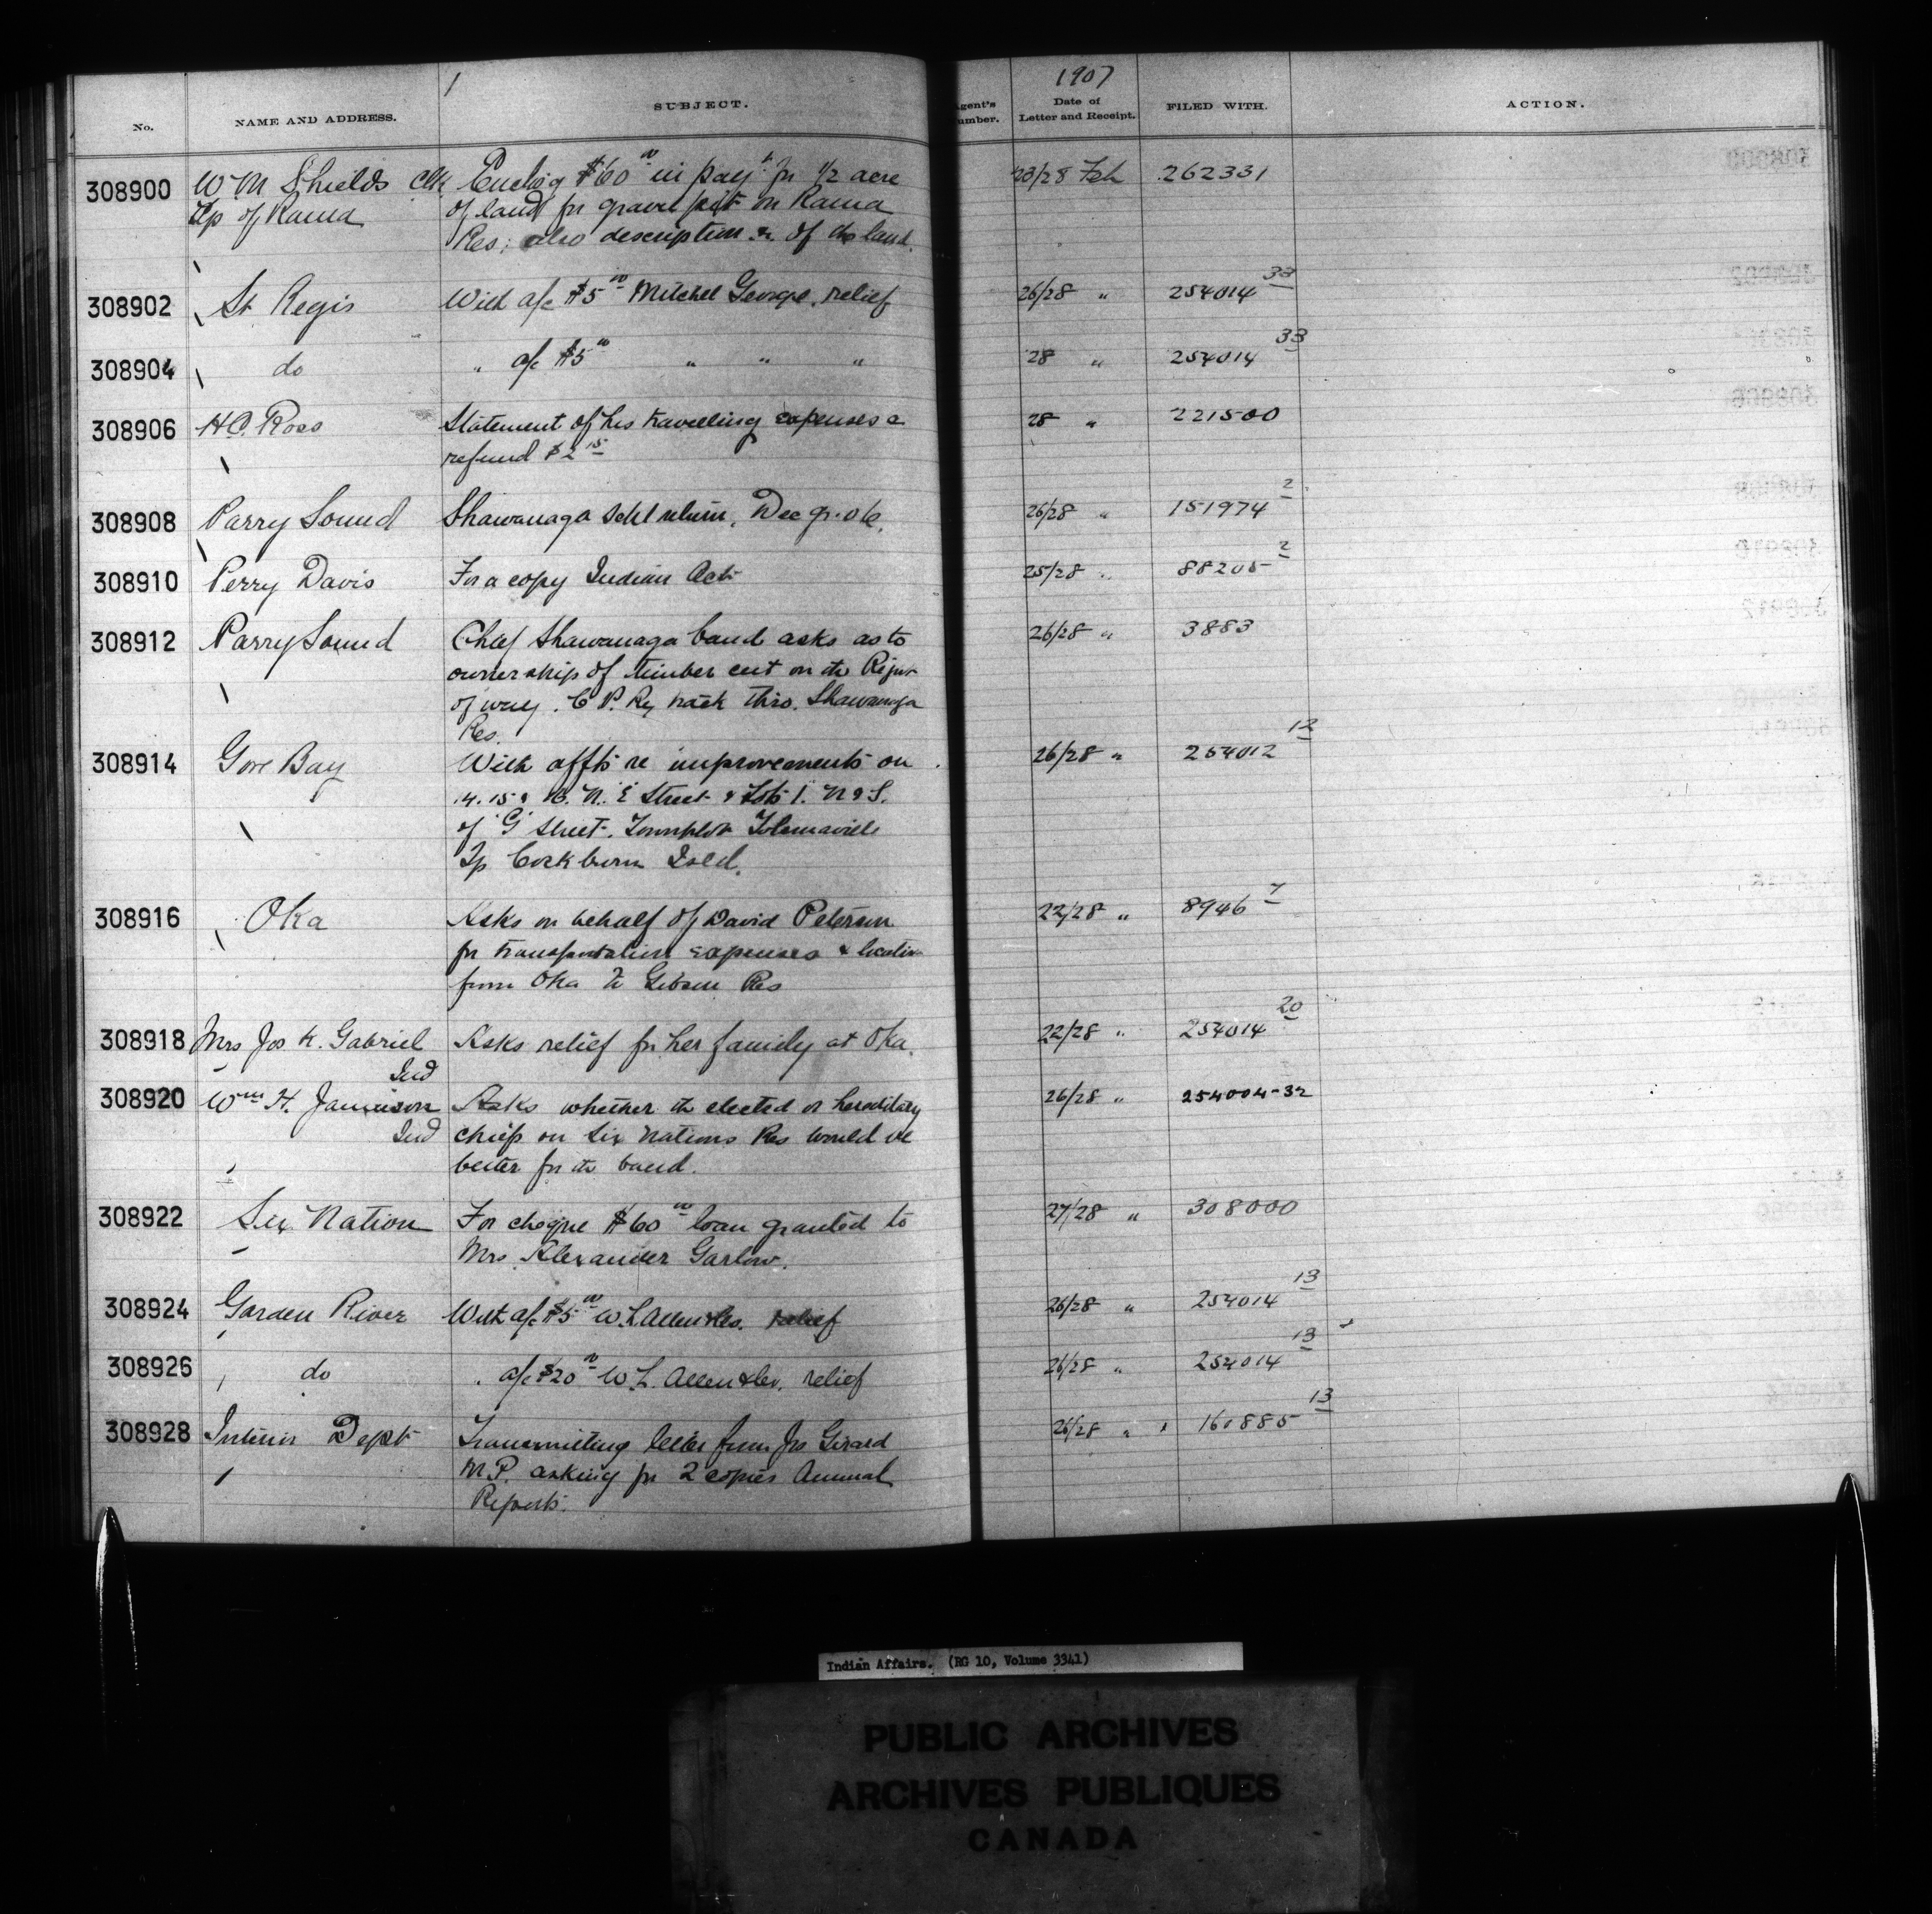 1907
No. NAME AND ADDRESS. SUBJECT. Agent's Number. Date of Letter and Receipt. FILED WITH. ACTION.
308900 W M Shields Clk Enclos'g $60 00 in pay't for 1/2 acre 23/28 Feb 262331
Tp of Rama of land for gravel pit on Rama
Res; also description &c of the land.
308902 St Regis With a/c $5 00 Mitchel George, relief 26/28 " 254014 33
308904 do " a/c $5 00 " " " 28 " 254014 33
308906 H.C. Ross Statement of his travelling expenses & 28 " 221500
refund $2 15
308908 Parry Sound Shawanaga Schl return, Dec qr. 06. 26/28 " 151974 2
308910 Perry Davis For a copy Indian Act 25/28 " 88205 2
308912 Parry Sound Chief Shawanaga band asks as to 26/28 " 3883
ownership of timber cut on the Right
of way. C P. Ry track thro. Shawanaga
Res.
308914 Gore Bay With affts re improvements on 26/28 " 254012 12
14. 15 & 16. N. E Street & Lots 1. N & S.
of 'G' Street. Townplot Tolsmaville
Tp Cockburn Isld.
308916 Oka Asks on behalf of David Peterson 22/28 " 8946 7
for transportation expenses & location
from Oka to Gibson Res
308918 Mrs Jos K. Gabriel Asks relief for her family at Oka. 22/28 " 254014 20
Ind
308920 Wm H. Jamieson Asks whether the elected or hereditary 26/28 " 254004-32
Ind chiefs on Six Nations Res would be
better for the band.
308922 Six Nation For cheque $60 00 loan granted to 27/28 " 308000
Mrs Alexander Garlow.
308924 Garden River With a/c $5 00 W. L. Allen & Co. relief 26/28 " 254014 13
308926 do " a/c $20 00 W. L. Allen & Co. relief 26/28 " 254014 13
308928 Interior Dept Transmitting letter from Jos Girard 26/28 " 160885 13
M.P. asking for 2 copies Annual
Reports.
Indian Affairs. (RG 10, Volume 3341)
PUBLIC ARCHIVES
ARCHIVES PUBLIQUES
CANADA